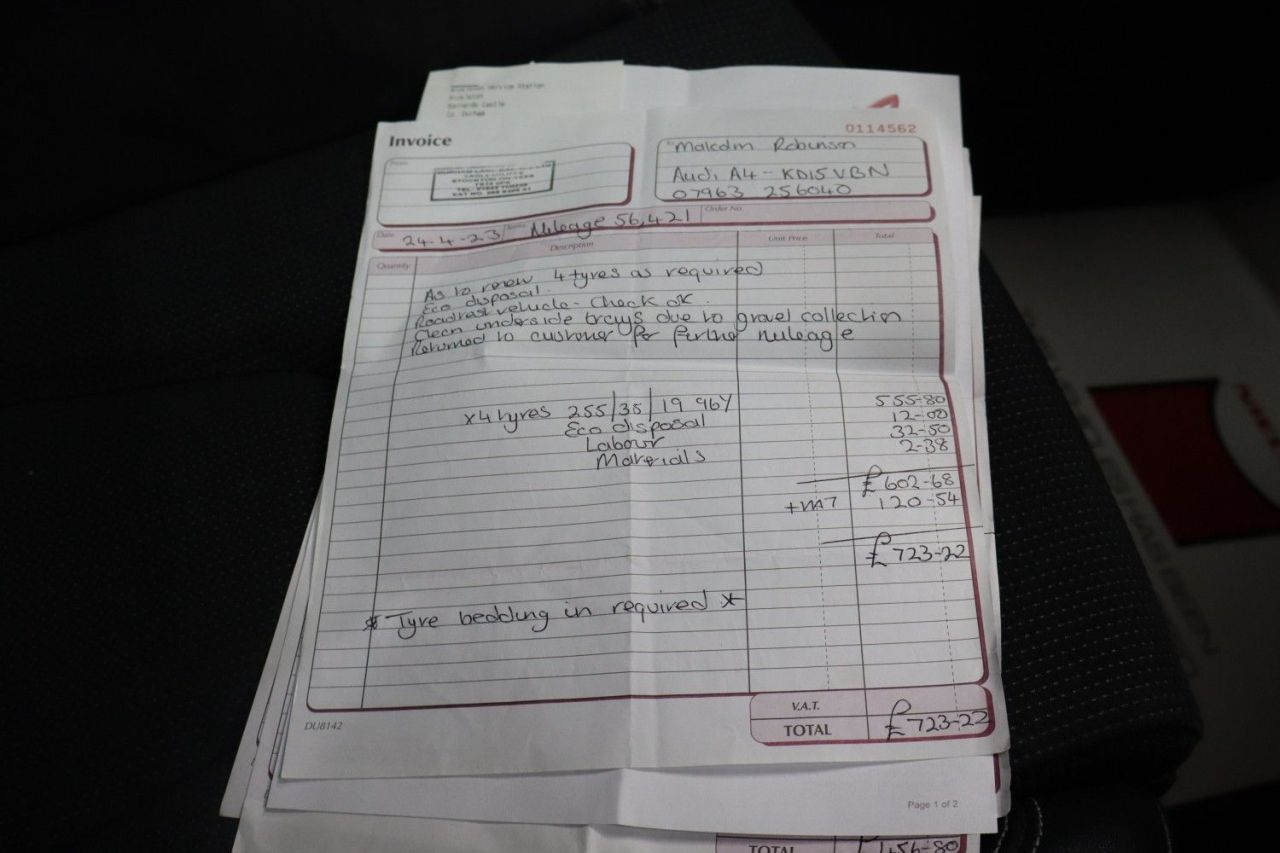 Service Station
Co. Durham
Invoice
0114562
From
Malcolm Robinson
Audi A4 - KD15 VBN
07963 256040
Date 24-4-23 Mileage 56,421 Order No.
Quantity Description Unit Price Total
As to renew 4 tyres as required
Eco disposal.
Roadtest vehicle - Check ok.
Clean underside trays due to gravel collection
Returned to customer for further mileage
x4 tyres 255/35/19 96Y 555-80
Eco disposal 12-00
Labour 32-50
Materials 2-38
£602-68
+VAT 120-54
£723-22
* Tyre bedding in required *
V.A.T.
TOTAL £723-22
DU8142
Page 1 of 2
TOTAL £156-80